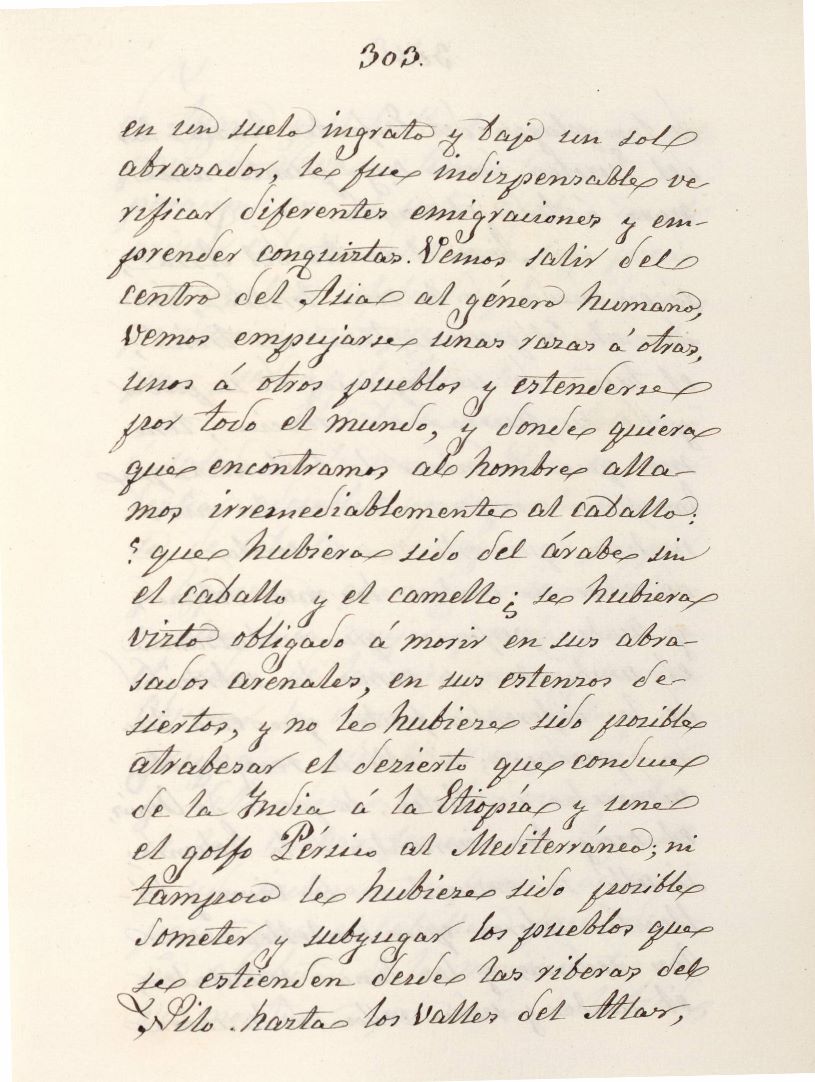 303.
en un suelo ingrato y bajo un sol
abrasador, le fue indispensable ve
rificar diferentes emigraciones y em-
prender conquistas. Vemos salir del
centro del Asia al género humano,
vemos empujarse unas razas á otras,
unos á otros pueblos y estenderse
por todo el mundo, y donde quiera
que encontramos al hombre alla-
mos irremediablemente al caballo:
¿ que hubiera sido del árabe sin
el caballo y el camello; se hubiera
visto obligado á morir en sus abra-
sados arenales, en sus estensos de-
siertos, y no le hubiese sido posible
atrabesar el desierto que conduce
de la India á la Etiopía y une
el golfo Pérsico al Mediterráneo; ni
tampoco le hubiese sido posible
someter y subyugar los pueblos que
se estienden desde las riberas del
Nilo hasta los valles del Atlas,